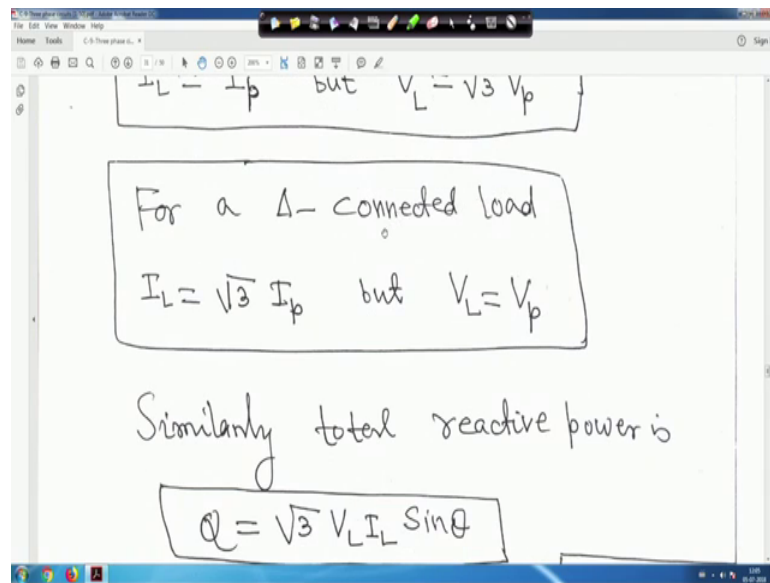 C-9-Three phase circuits
File Edit View Window Help
Home Tools C-9-Three phase ci... × Sign
I_L = I_p but V_L = √3 V_p
For a Δ- connected load
I_L = √3 I_p but V_L = V_p
Similarly total reactive power is
Q = √3 V_L I_L Sinθ